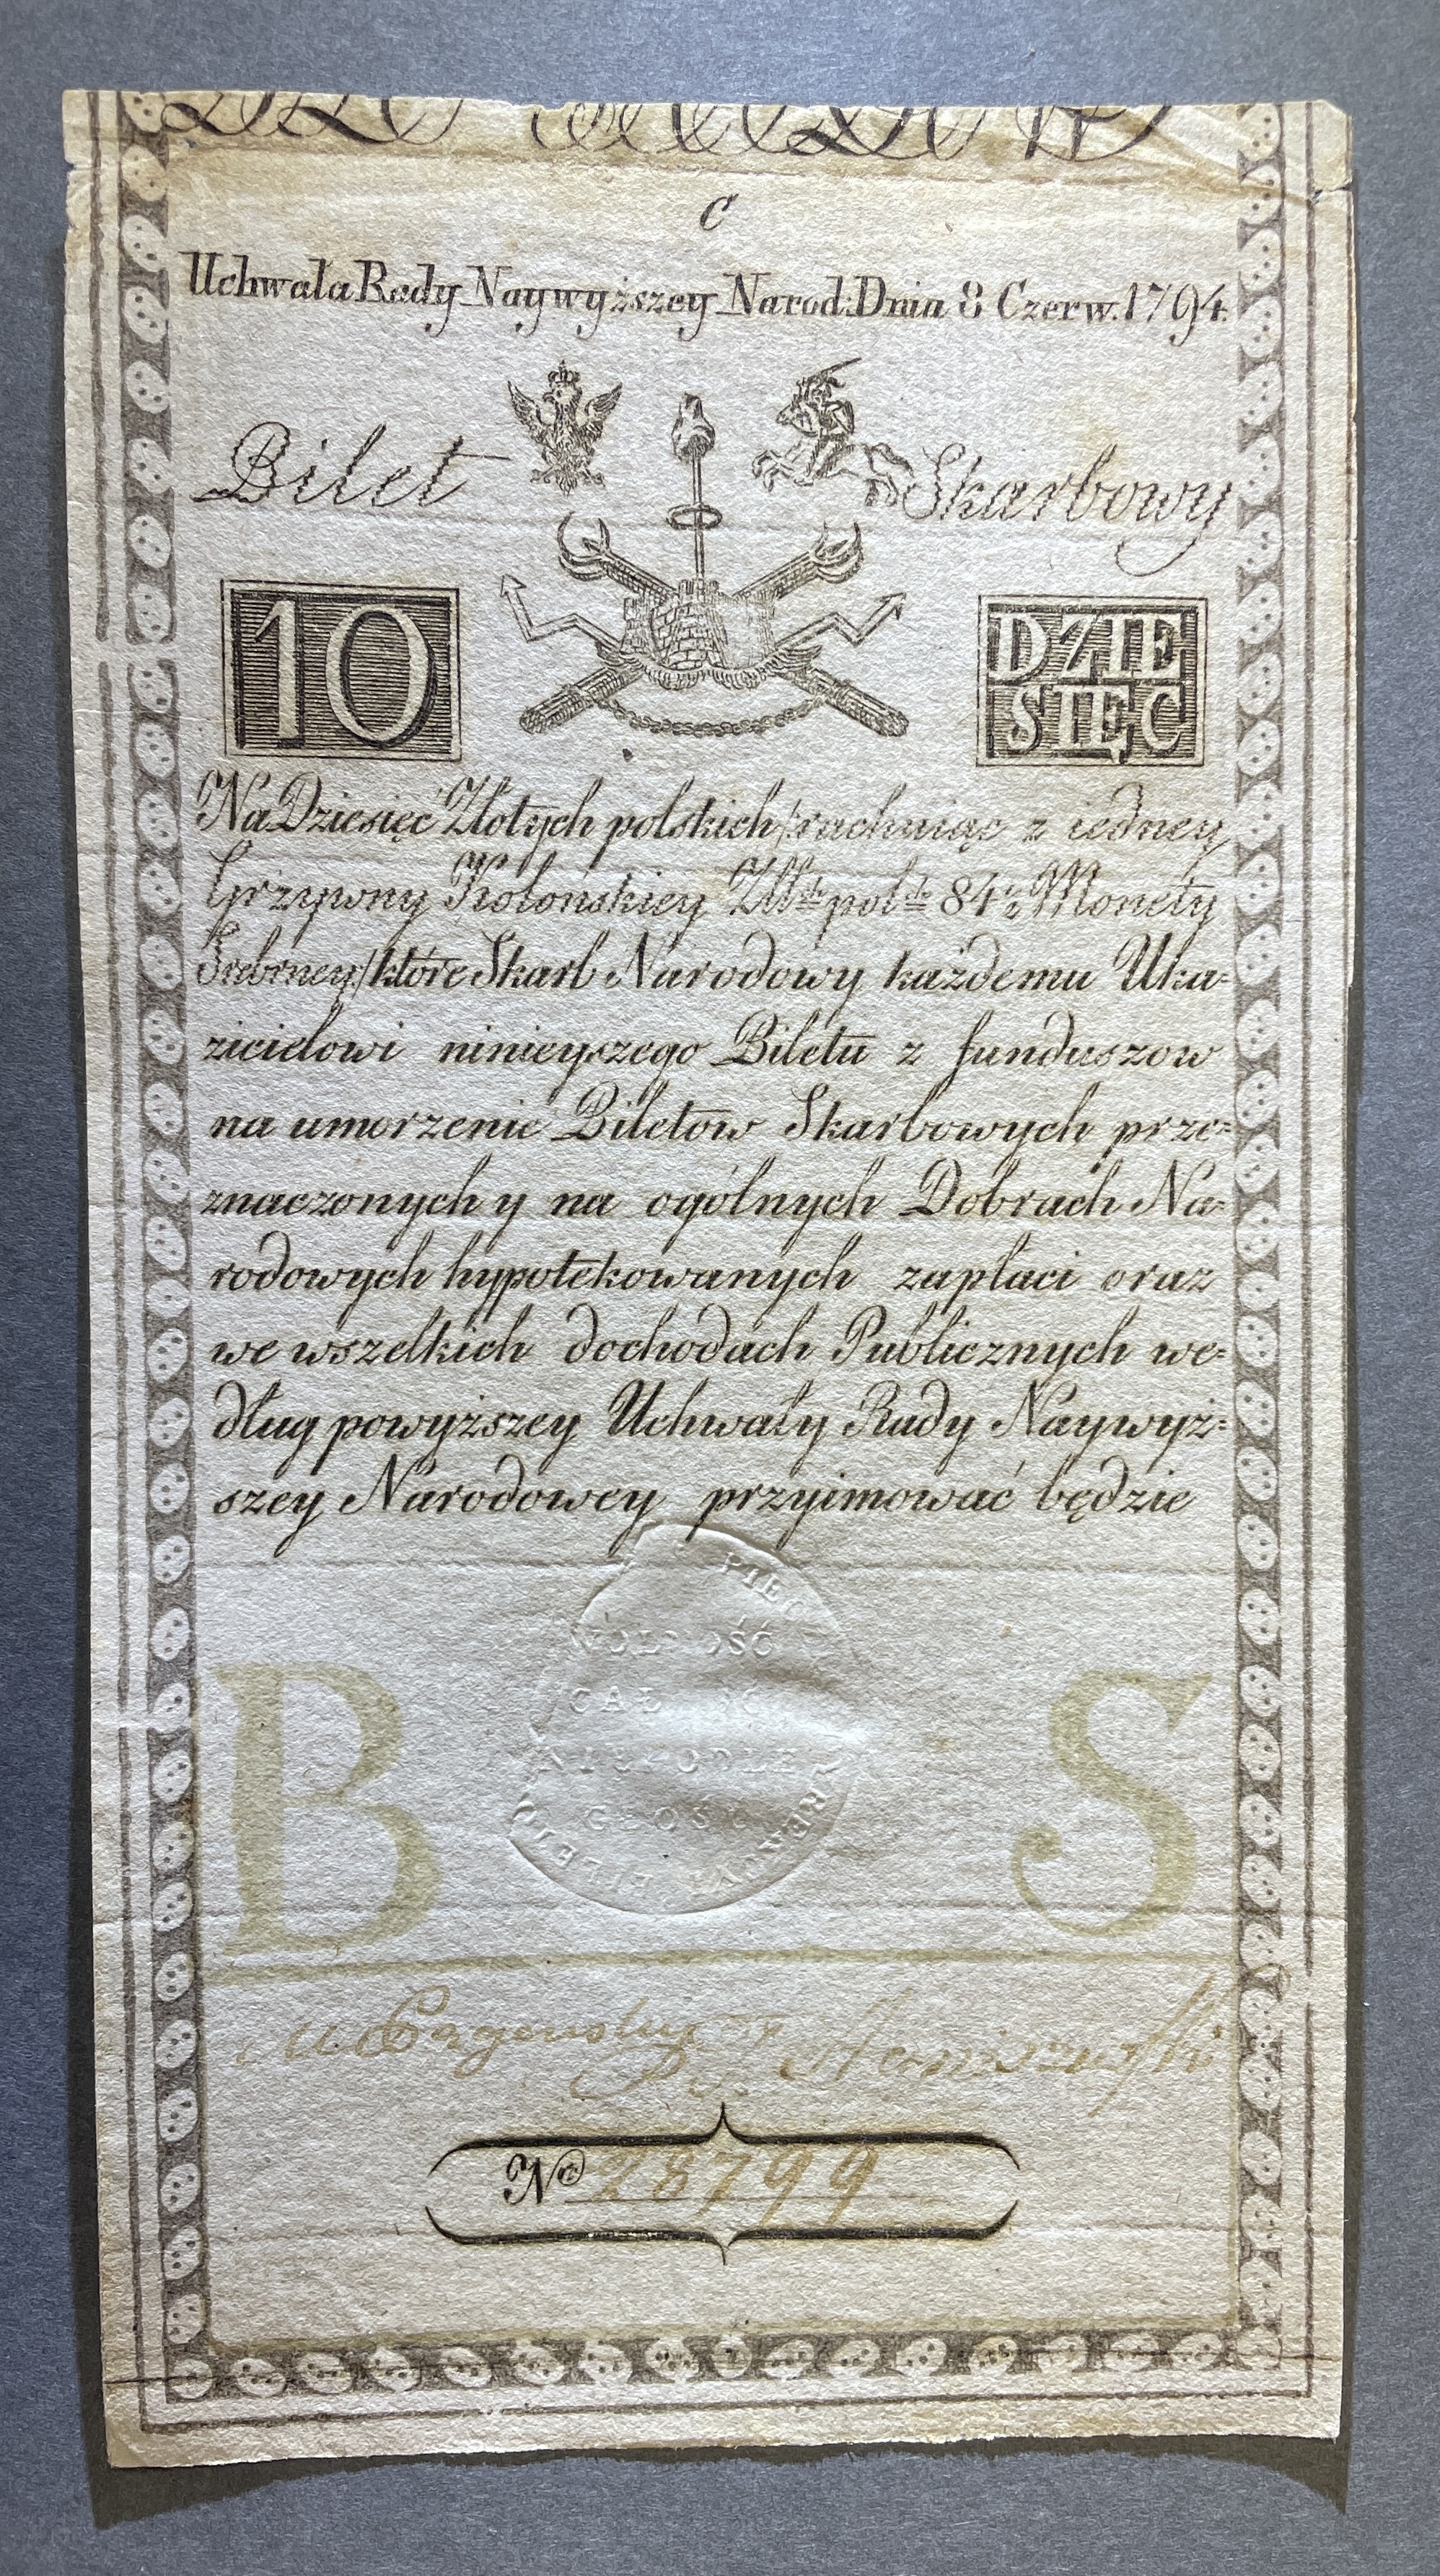 C
Uchwała Rady Naywyższey Narod: Dnia 8 Czerw. 1794.
Bilet Skarbowy
10 DZIE
SIĘC
Na Dziesięć Złotych polskich /: rachuiąc z iedney
Grzywny Kolońskiey Złłch polch 84½ Monety
Srebrney :/ ktore Skarb Narodowy każdemu Uka-
zicielowi ninieyszego Biletu z funduszow
na umorzenie Biletow Skarbowych prze=
znaczonych y na ogólnych Dobrach Na-
rodowych hypotekowanych zapłaci oraz
we wszelkich dochodach Publicznych we=
dług powyższey Uchwały Rady Naywyż=
szey Narodowey przyimować będzie
WOLNOŚĆ
CAŁOŚĆ
NIEPODLE
GŁOŚĆ
B S
No 28799